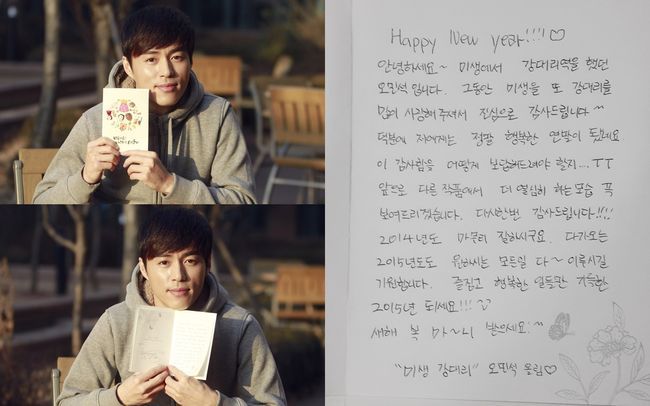 Happy New year!!! ♡
안녕하세요~ 미생에서 강대리역을 했던
오민석입니다. 그동안 미생을 또 강대리를
많이 사랑해주셔서 진심으로 감사드립니다^^
덕분에 저에게는 정말 행복한 연말이 됐네요
이 감사함을 어떻게 보답해드려야 할지...ㅜㅜ
앞으로 다른 작품에서 더 열심히 하는모습 꼭
보여드리겠습니다. 다시한번 감사드립니다!!!!
2014년도 마무리 잘하시구요. 다가오는
2015년도도 원하시는 모든일 다~ 이루시길
기원합니다. 즐겁고 행복한 일들만 가득한
2015년 되세요!!!
새해 복 마~니 받으세요^^
"미생 강대리" 오민석 올림♡